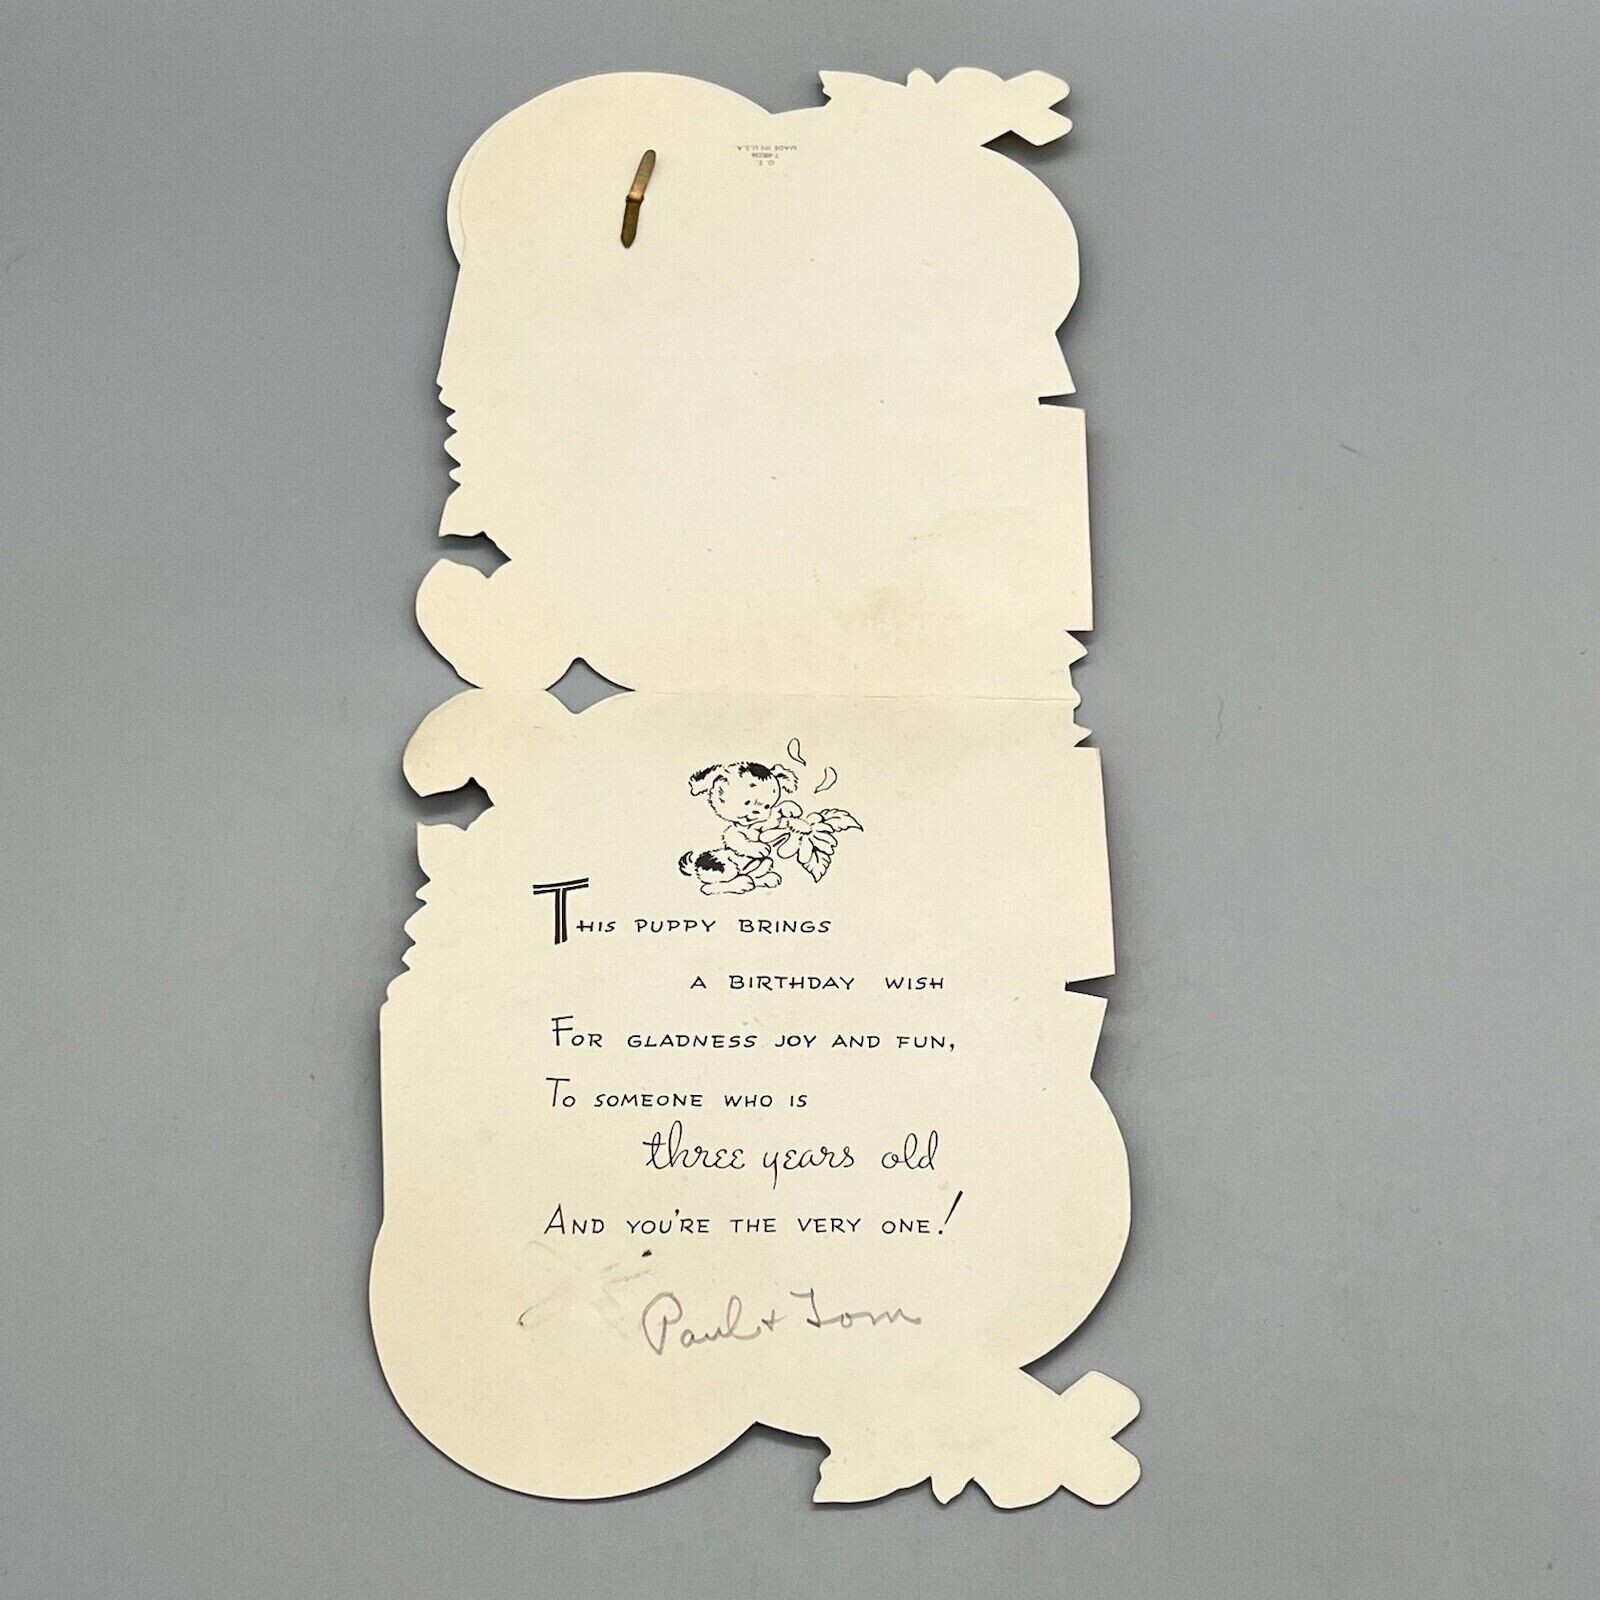 G. E.
MADE IN U.S.A.
THIS PUPPY BRINGS
A BIRTHDAY WISH
FOR GLADNESS JOY AND FUN,
TO SOMEONE WHO IS
three years old
AND YOU'RE THE VERY ONE!
Paul + Tom